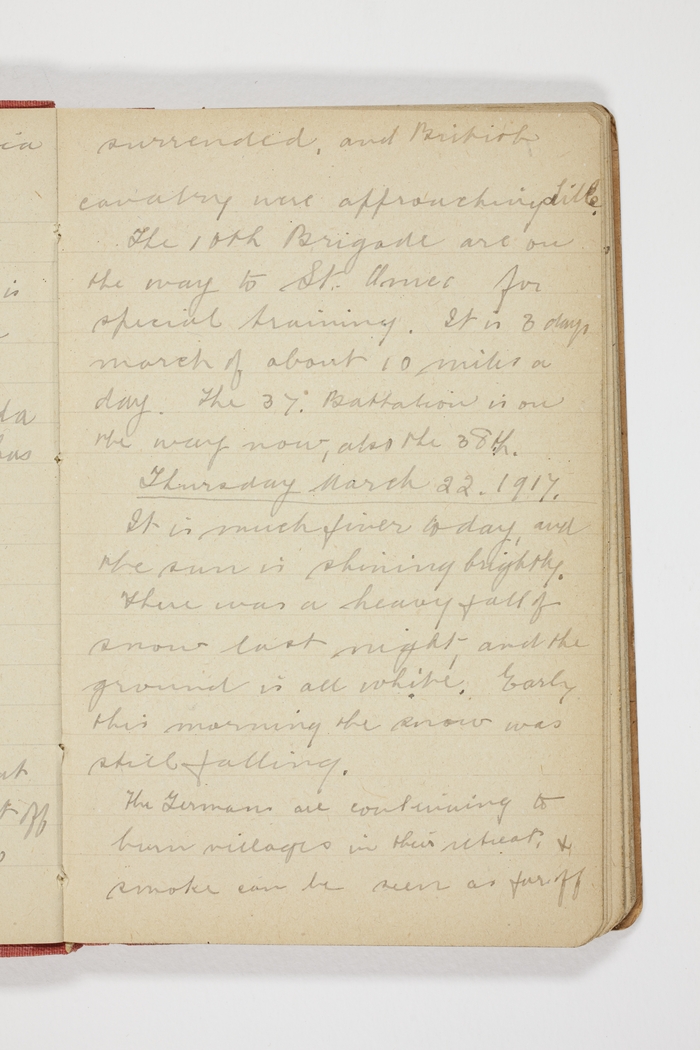 surrended, and British
cavalry were approaching Lille.
The 10th Brigade are on
the way to St. Omer for
special training. It is 3 days
march of about 10 miles a
day. The 37. Battalion is on
the way now, also the 38th.
Thursday March 22. 1917.
It is much finer today, and
the sun is shining brightly.
There was a heavy fall of
snow last night, and the
ground is all white. Early
this morning the snow was
still falling.
The Germans are continuing to
burn villages in their retreat, &
smoke can be seen as far off
ia
is
da
has
at
off